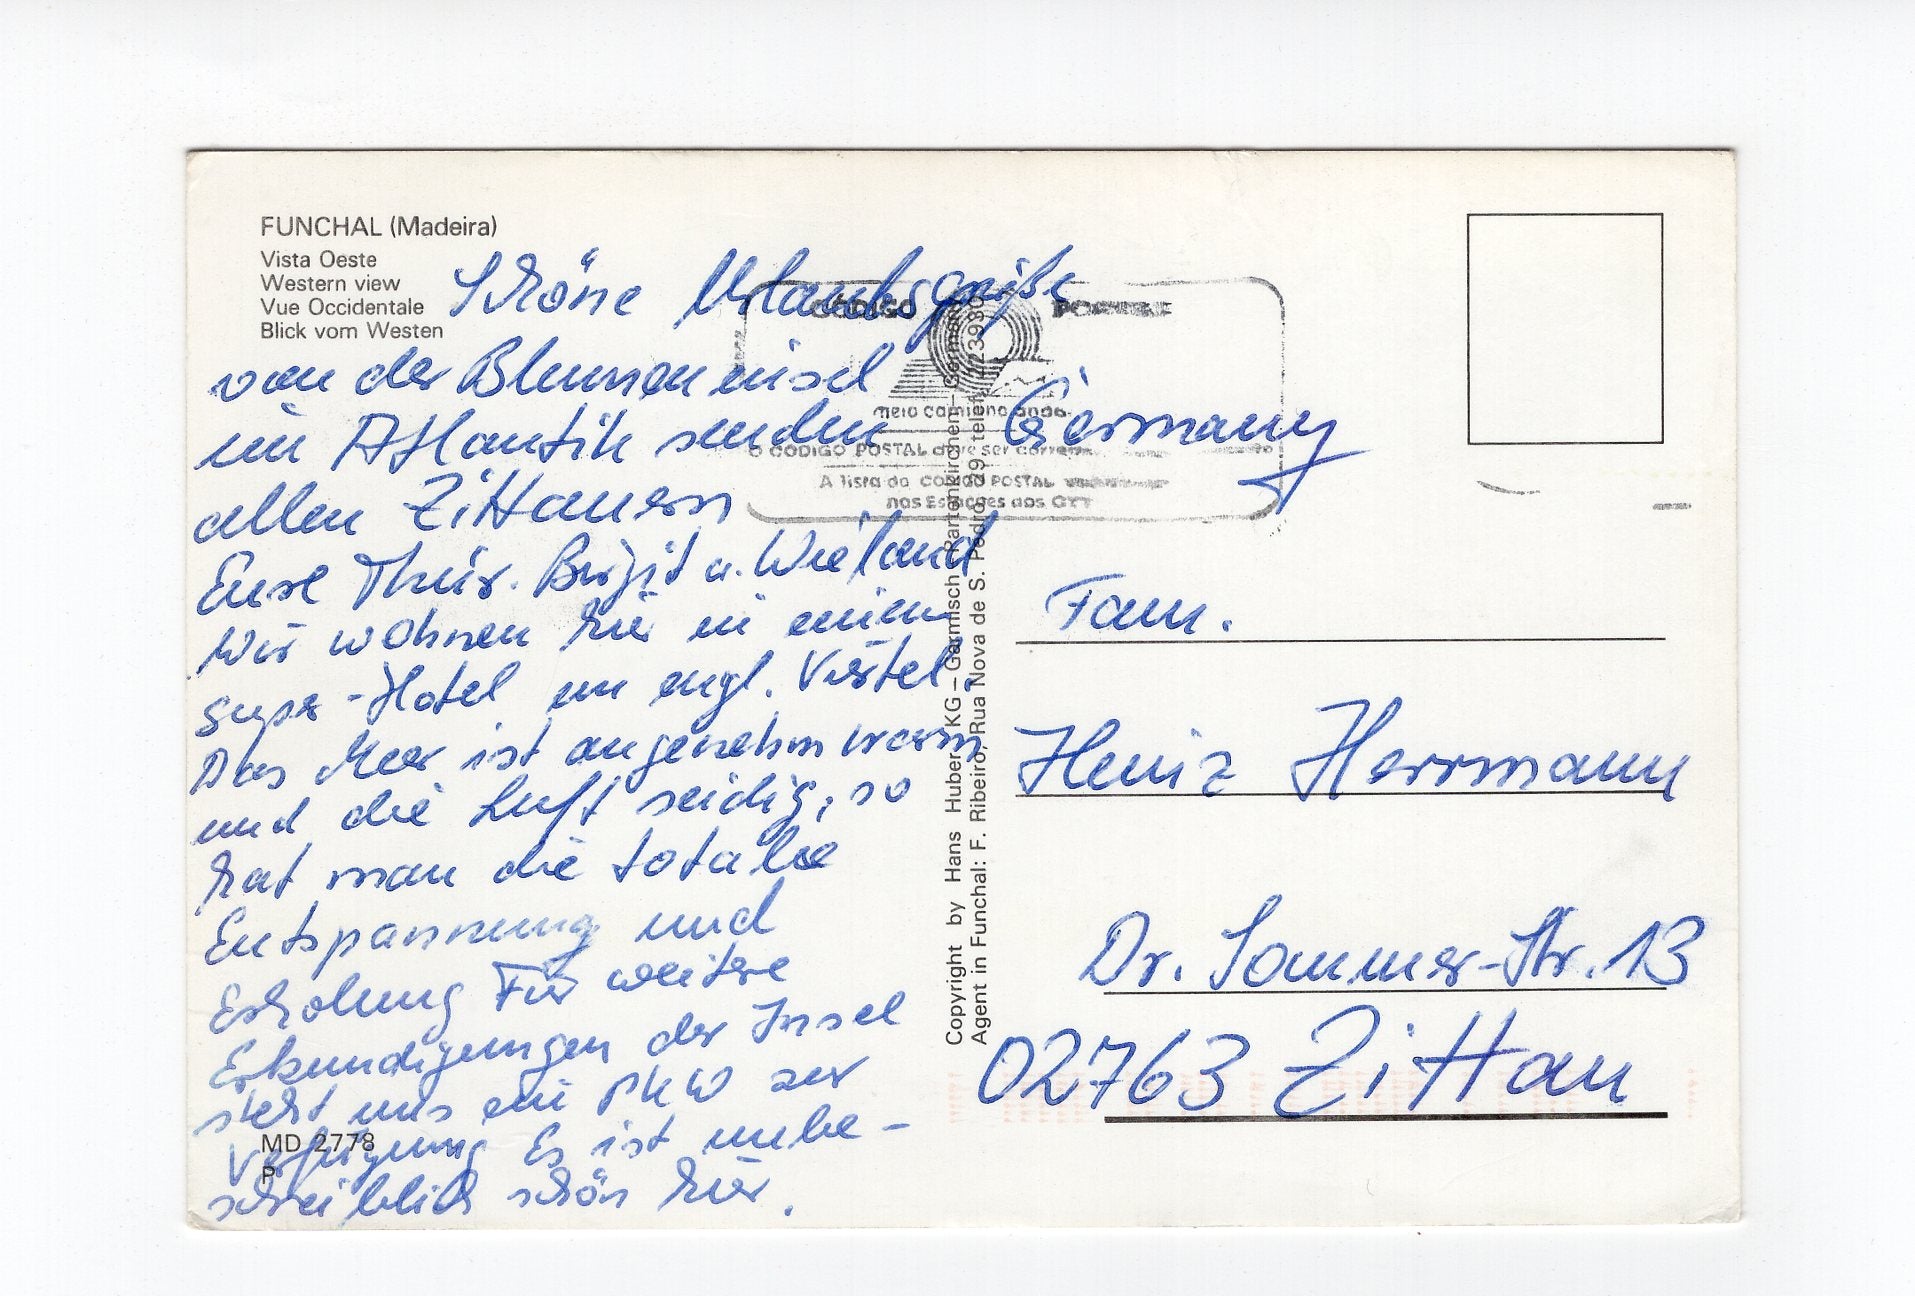 FUNCHAL (Madeira)
Vista Oeste
Western view
Vue Occidentale
Blick vom Westen
Schöne Urlaubsgrüße
von der Blumeninsel
im Atlantik senden
allen Zittauern
Eure Thür. Birgit u. Wieland
Wir wohnen hier in einem
super-Hotel im engl. Viertel.
Das Meer ist angenehm warm
und die Luft seidig, so
hat man die totale
Entspannung und
Erholung Für weitere
Erkundigungen der Insel
steht uns ein PKW zur
Verfügung Es ist unbe-
schreiblich schön hier.
MD 2778
P
Copyright by Hans Huber KG – Garmisch-Partenkirchen – Germany
Agent in Funchal: F. Ribeiro, Rua Nova de S. Pedro, 29 telef. 23930
CÓDIGO POSTAL
meio caminho andado
O CÓDIGO POSTAL deve ser
A lista do CÓDIGO POSTAL
nas Estações dos CTT
Germany
Fam.
Heinz Herrmann
Dr. Sommer-Str. 13
02763 Zittau